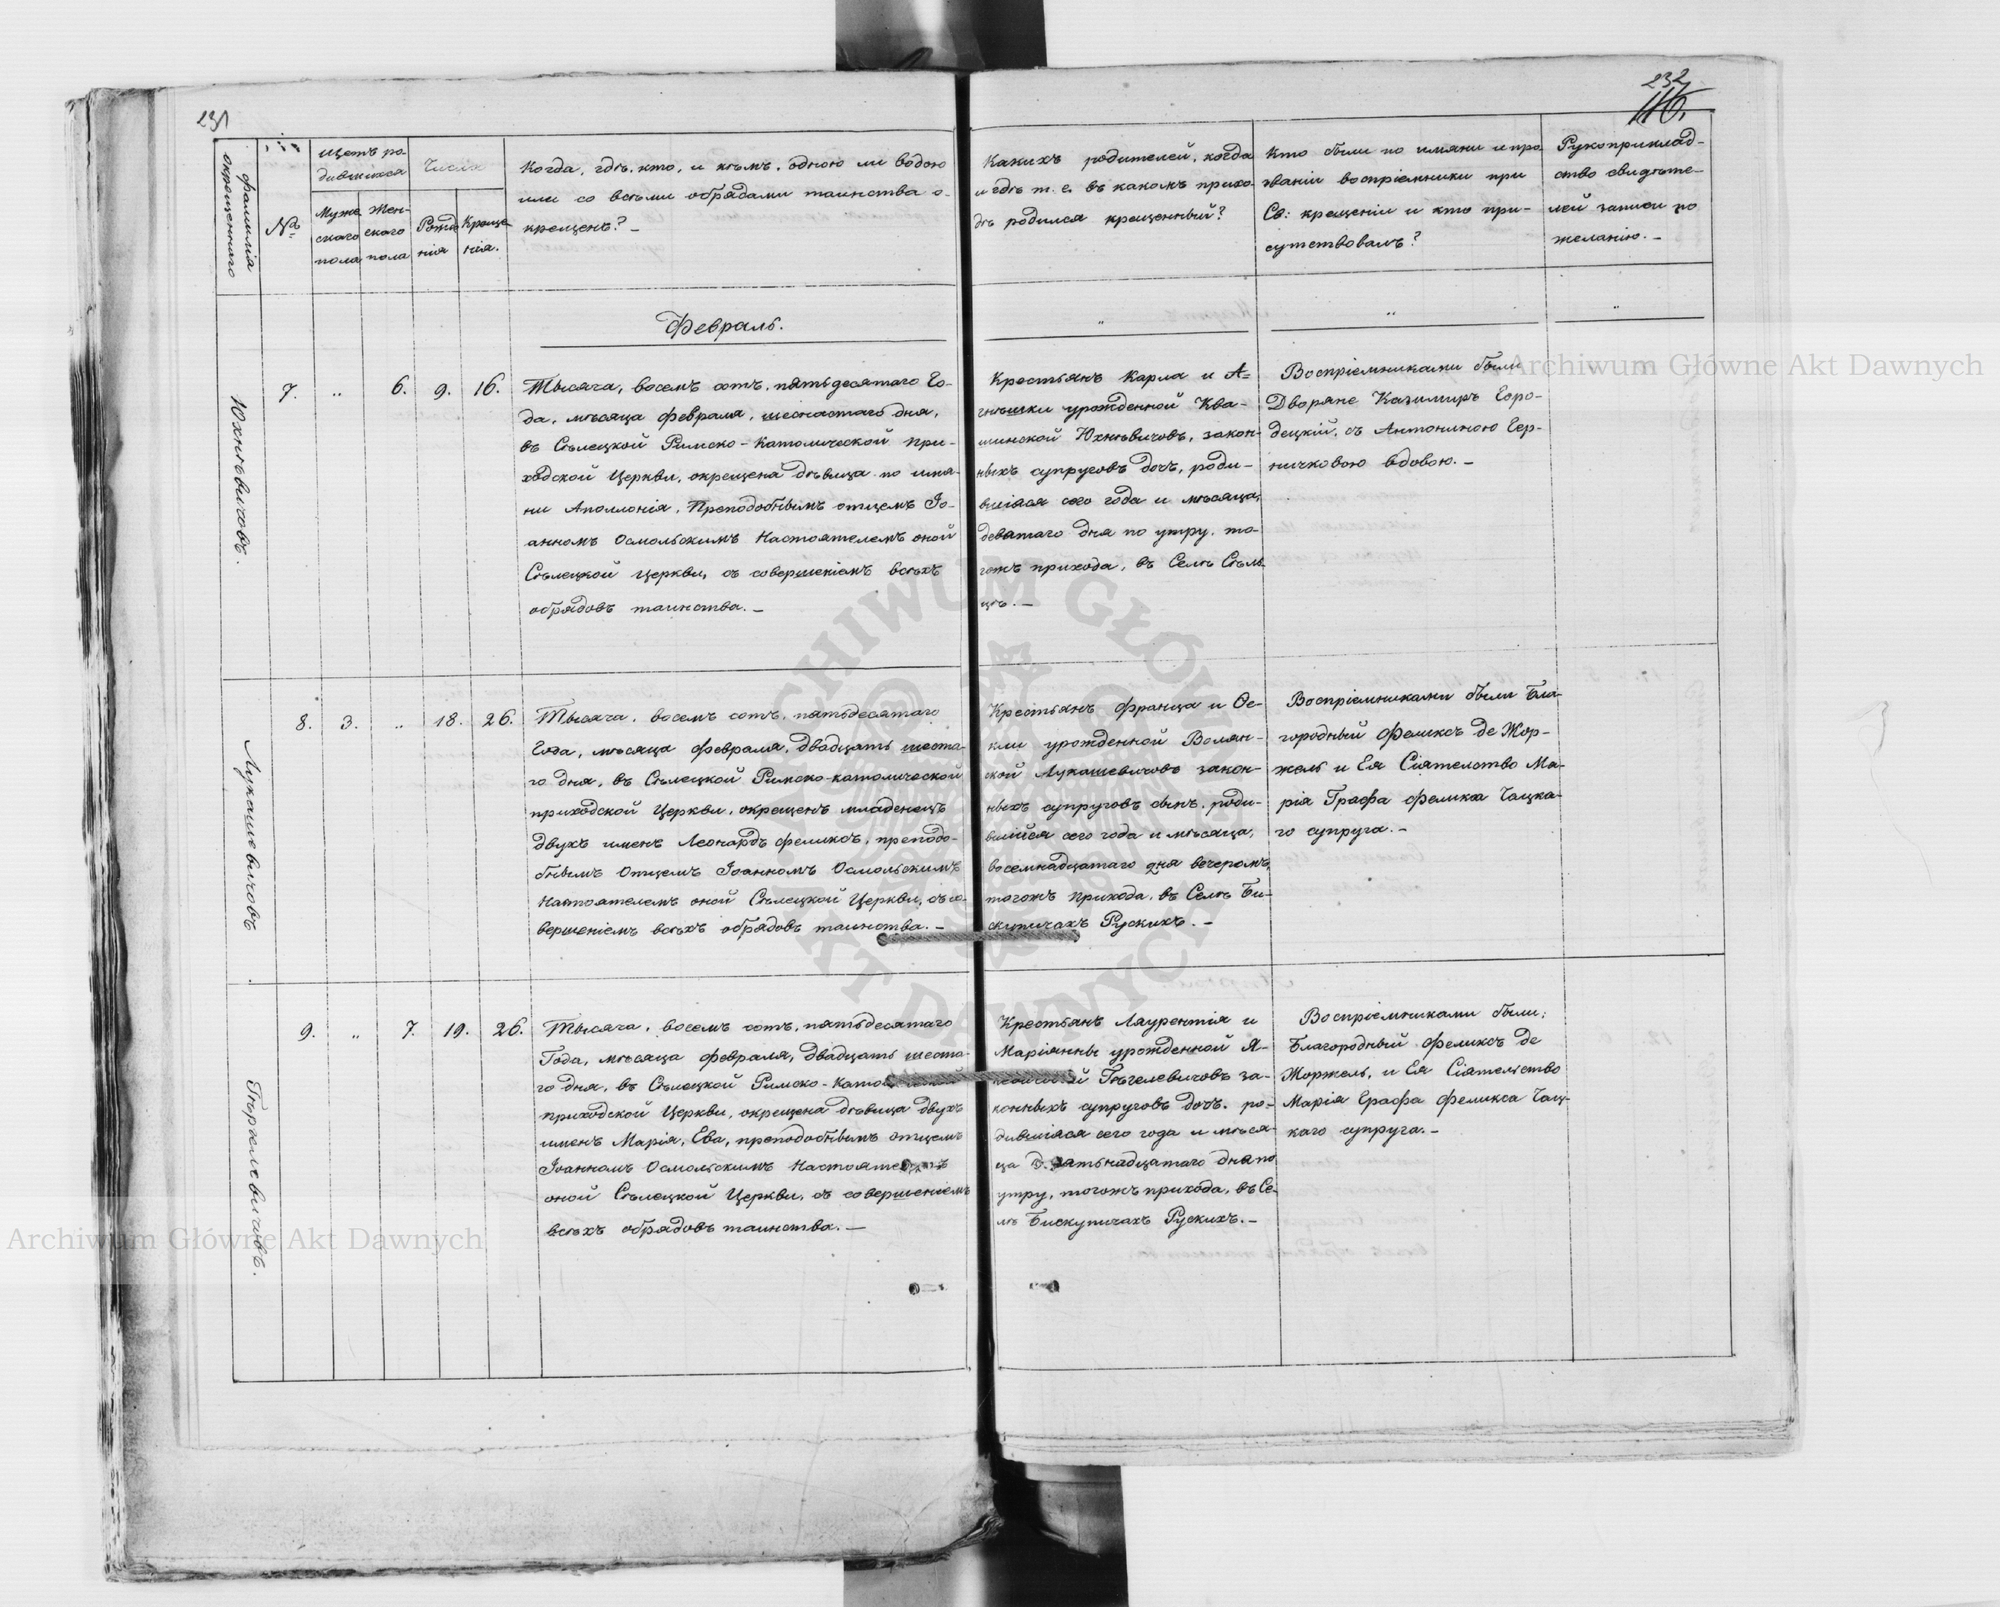 231
232
116.
фамилія окрещеннаго
№
щетъ ро-
дившихся
Муже
скаго
пола
Жен-
скаго
пола
Число
Рожде
нія
Креще
нія.
Когда, гдѣ, кто, и кѣмъ, одною ли водою
или со всѣми обрядами таинства о-
крещенъ? —
Какихъ родителей, когда
и гдѣ т. е. въ какомъ прихо-
дѣ родился крещенный?
Кто были по имяни и про
званіи воспріемники при
Св: крещеніи и кто при-
сутствовалъ?
Рукоприклад-
ство свидѣте-
лей записи по
желанію. —
Февраль.
Юхнѣвичовъ.
7. " 6. 9. 16.
Тысяча, восемъ сотъ, пятьдесятаго Го-
да, мѣсяца февраля, шеснастаго дня,
въ Сѣлецкой Римско-Католической При-
ходской Церкви, окрещена дѣвица по имя-
ни Аполлонія, Преподобнымъ отцемъ Іо-
анномъ Осмольскимъ Настоятелемъ оной
Сѣлецкой Церкви, съ совершеніемъ всѣхъ
обрядовъ таинства. —
Крестьянъ Карла и А=
гнѣшки урожденной Ква-
шинской Юхнѣвичовъ, закон-
ныхъ супруговъ дочъ, роди-
вшіяся сего года и мѣсяца,
деватаго дня по утру, то-
гожъ прихода, въ Селѣ Сѣль
цѣ. —
Воспріемниками были
Дворяне Казимиръ Горо-
децкій, съ Антониною Гер-
ничковою вдовою. —
Лукашевичовъ
8. 3. " 18. 26.
Тысяча, восемъ сотъ, пятьдесятаго
Года, мѣсяца февраля, двадцать шеста-
го дня, въ Сѣлецкой Римско-католической
приходской Церкви, окрещенъ младенецъ
двухъ именъ Леонардъ Феликсъ, преподо-
бнымъ Отцемъ Іоанномъ Осмольскимъ
Настоятелемъ оной Сѣлецкой Церкви, съ со-
вершеніемъ всѣхъ обрядовъ таинства. —
Крестьянъ Франца и Ѳе-
кли урожденной Волян-
ской Лукашевичовъ закон-
ныхъ супруговъ сынъ, роди-
вшійся сего года и мѣсяца,
восемнадцатаго дня вечеромъ,
тогожъ прихода, въ Селѣ Би-
скупичахъ Рускихъ. —
Воспріемниками были Бла-
городный Феликсъ де Жор-
жель и Ея Сіятелство Ма-
рія Графа Феликса Чацка-
го супруга. —
9. " 7. 19. 26.
Тысяча, восемъ сотъ, пятьдесятаго
Года, мѣсяца февраля, двадцать шеста-
го дня, въ Сѣлецкой Римско-Католической
приходской Церкви, окрещена дѣвица двухъ
именъ Марія, Ева, преподобнымъ отцемъ
Іоанномъ Осмольскимъ Настоятелемъ
оной Сѣлецкой Церкви, съ совершеніемъ
всѣхъ обрядовъ таинства. —
Крестьянъ Лаурентія и
Маріянны урожденной Я-
за-
конныхъ супруговъ дочъ, ро-
дившіяся сего года и мѣся-
ца девятьнадцатаго дня по
утру, тогожъ прихода, въ Се-
лѣ Бискупичахъ Рускихъ. —
Воспріемниками были;
Благородный Феликсъ де
Жоржель, и Ея Сіятельство
Марія Графа Феликса Чац-
каго супруга. —
Archiwum Główne Akt Dawnych
Archiwum Główne Akt Dawnych
ARCHIWUM GŁÓWNE AKT DAWNYCH